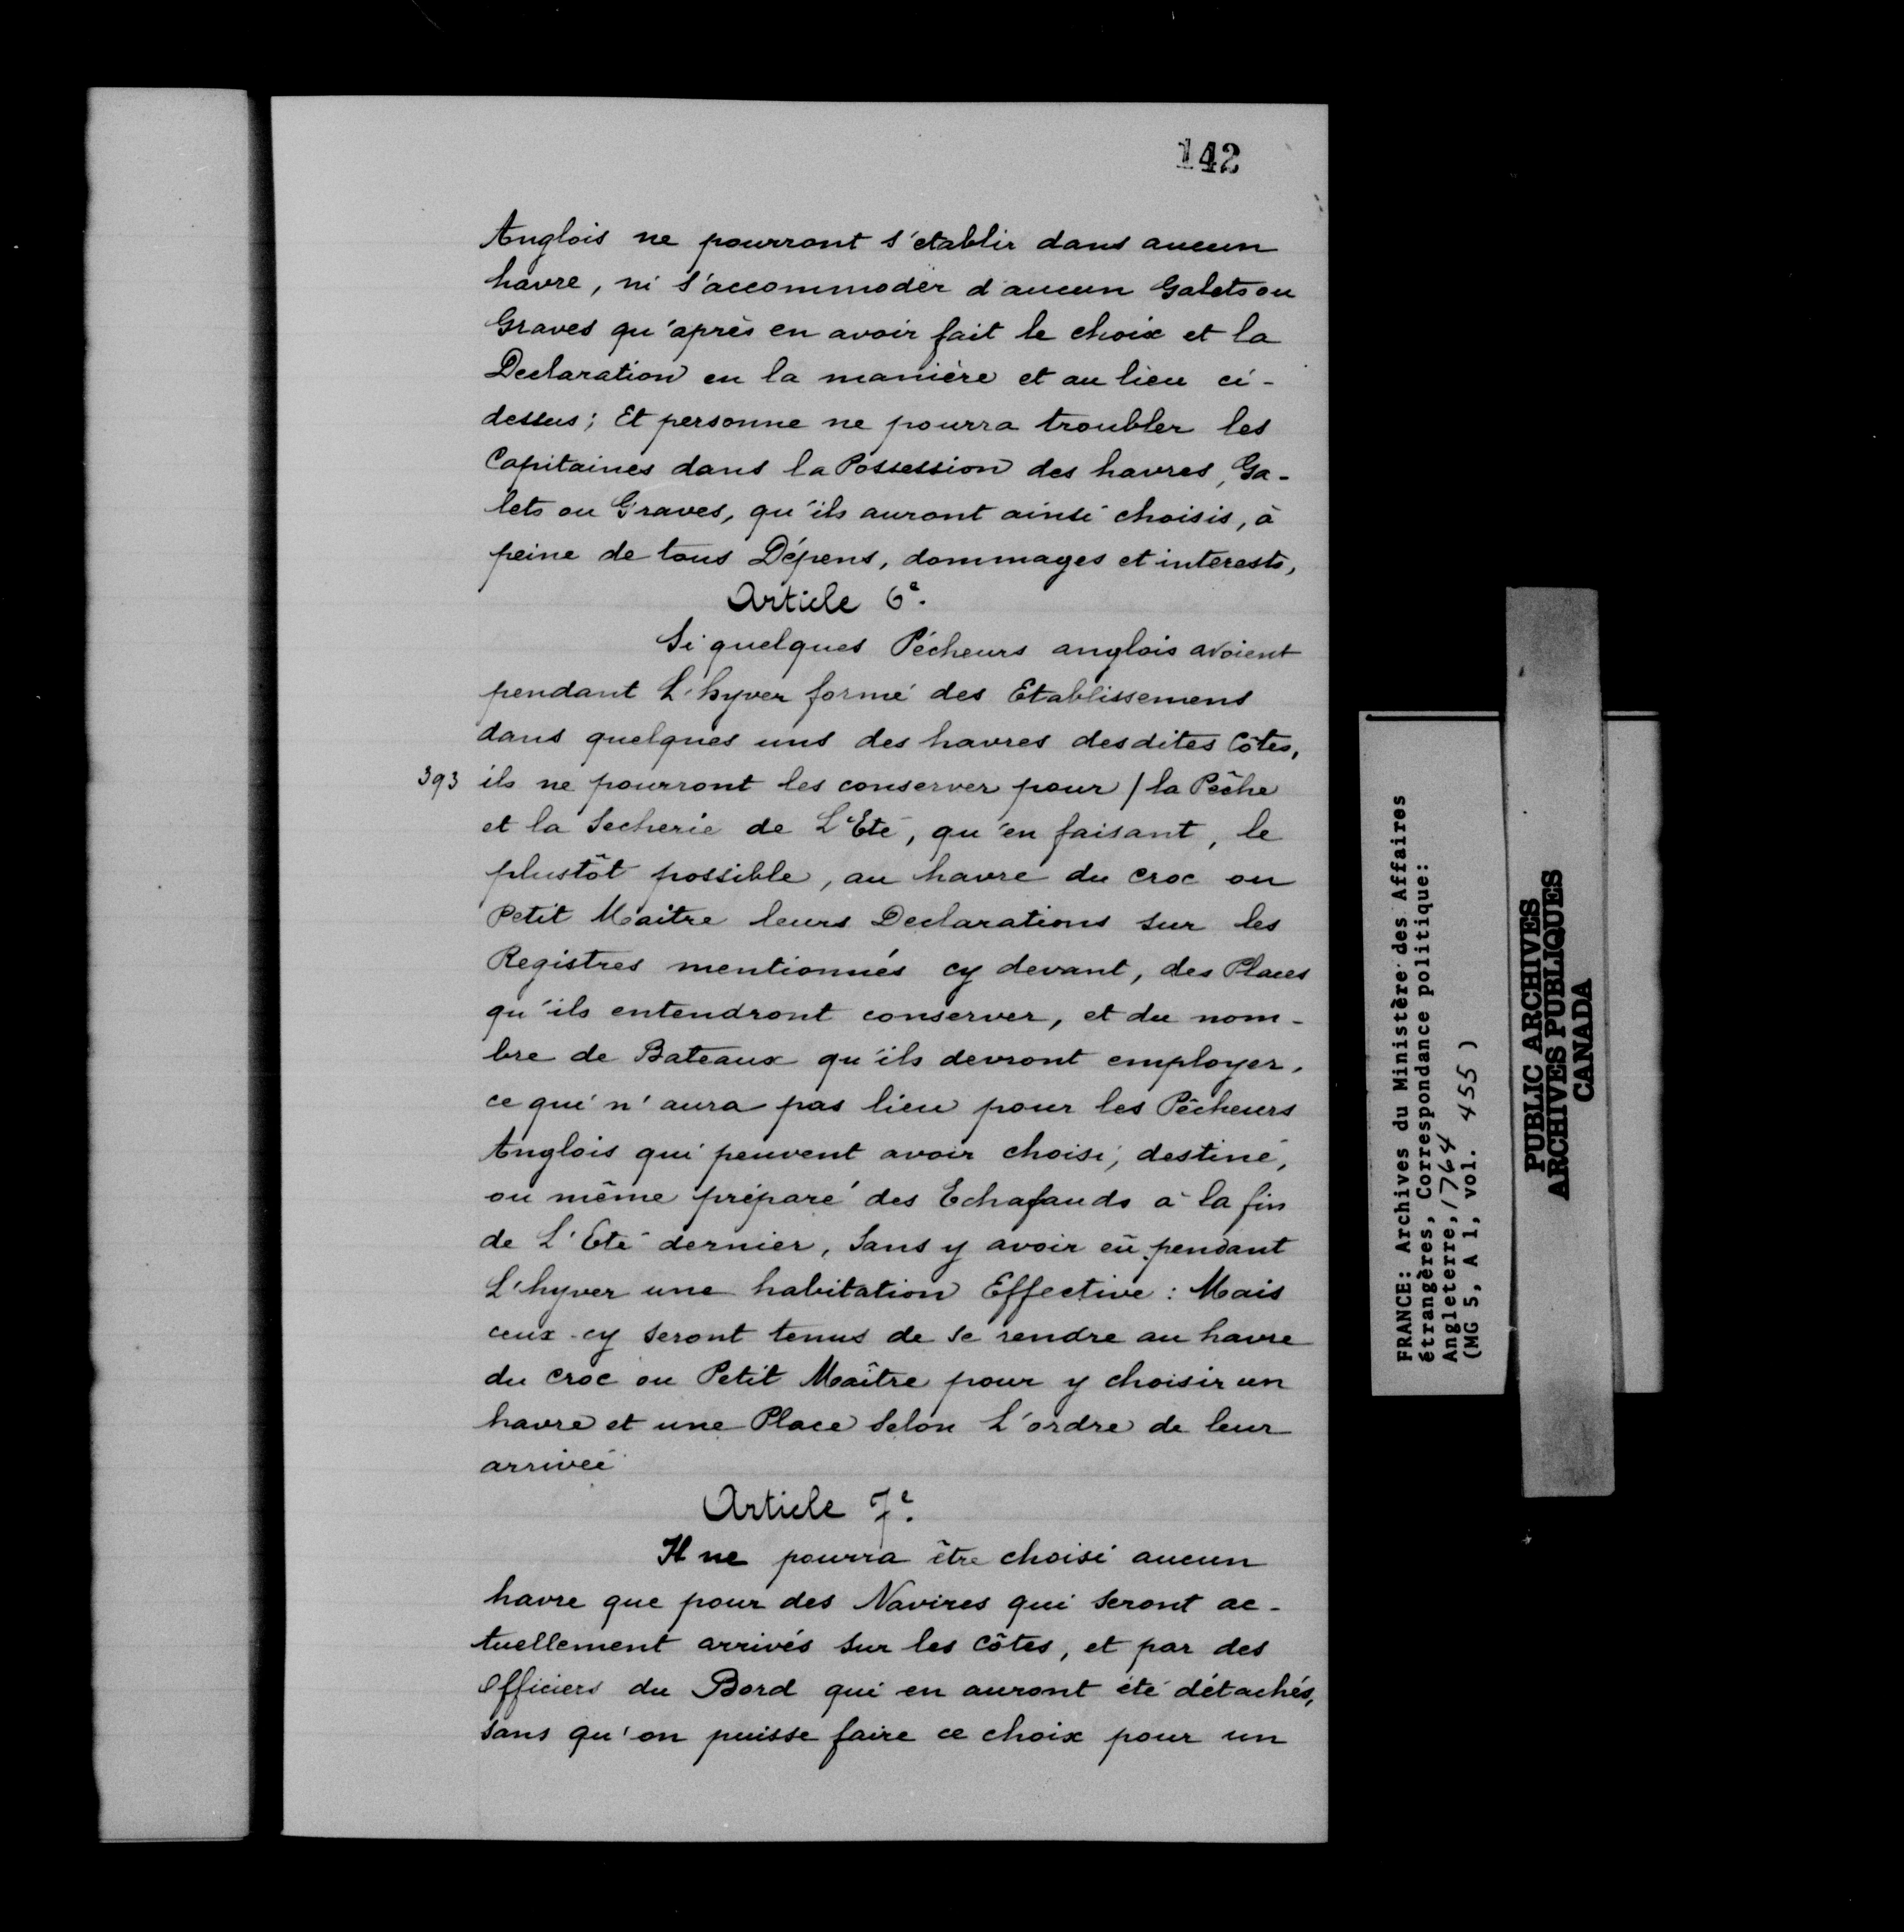 142
Anglois ne pourront s'etablir dans aucun
havre, ni s'accommoder d'aucun Galets ou
Graves qu'après en avoir fait le choix et la
Declaration en la manière et au lieu ci-
dessus; Et personne ne pourra troubler les
Capitaines dans la Possession des havres, Ga-
lets ou Graves, qu'ils auront ainsi choisis, à
peine de tous Dépens, dommages et interests,
Article 6e.
Si quelques Pécheurs anglois avoient
pendant L'hyver formé des Etablissemens
dans quelques uns des havres desdites Côtes,
393 ils ne pourront les conserver pour / la Pêche
et la Secherie de L'Eté, qu'en faisant, le
plustôt possible, au havre du croc ou
Petit Maitre leurs Declarations sur les
Registres mentionnés cy devant, des Places
qu'ils entendront conserver, et du nom-
bre de Bateaux qu'ils devront employer,
ce qui n'aura pas lieu pour les Pêcheurs
Anglois qui peuvent avoir choisi, destiné,
ou même préparé des Echafauds à la fin
de L'Eté dernier, Sans y avoir eû pendant
L'hyver une habitation Effective: Mais
ceux-cy seront tenus de se rendre au havre
du croc ou Petit Maître pour y choisir un
havre et une Place selon L'ordre de leur
arrivée
Article 7e.
Il ne pourra être choisi aucun
havre que pour des Navires qui seront ac-
tuellement arrivés sur les côtes, et par des
Officiers du Bord qui en auront été détachés,
sans qu'on puisse faire ce choix pour un
FRANCE: Archives du Ministère des Affaires
étrangères, Correspondance politique:
Angleterre, 1764
(MG 5, A 1, vol. 455)
PUBLIC ARCHIVES
ARCHIVES PUBLIQUES
CANADA